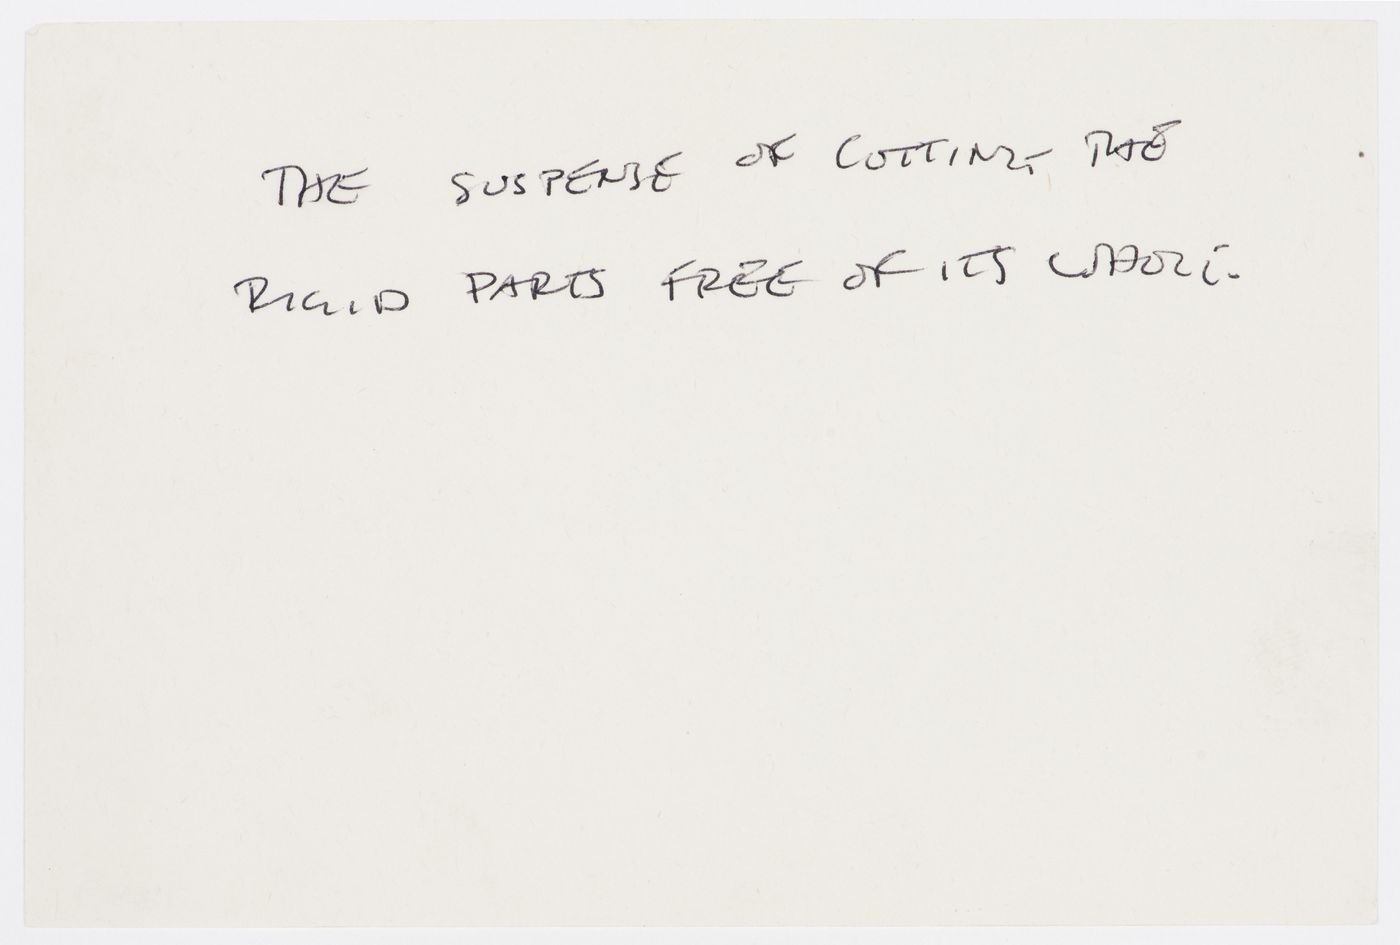 THE SUSPENSE OF CUTTING THE
RIGID PARTS FREE OF ITS WHOLE.